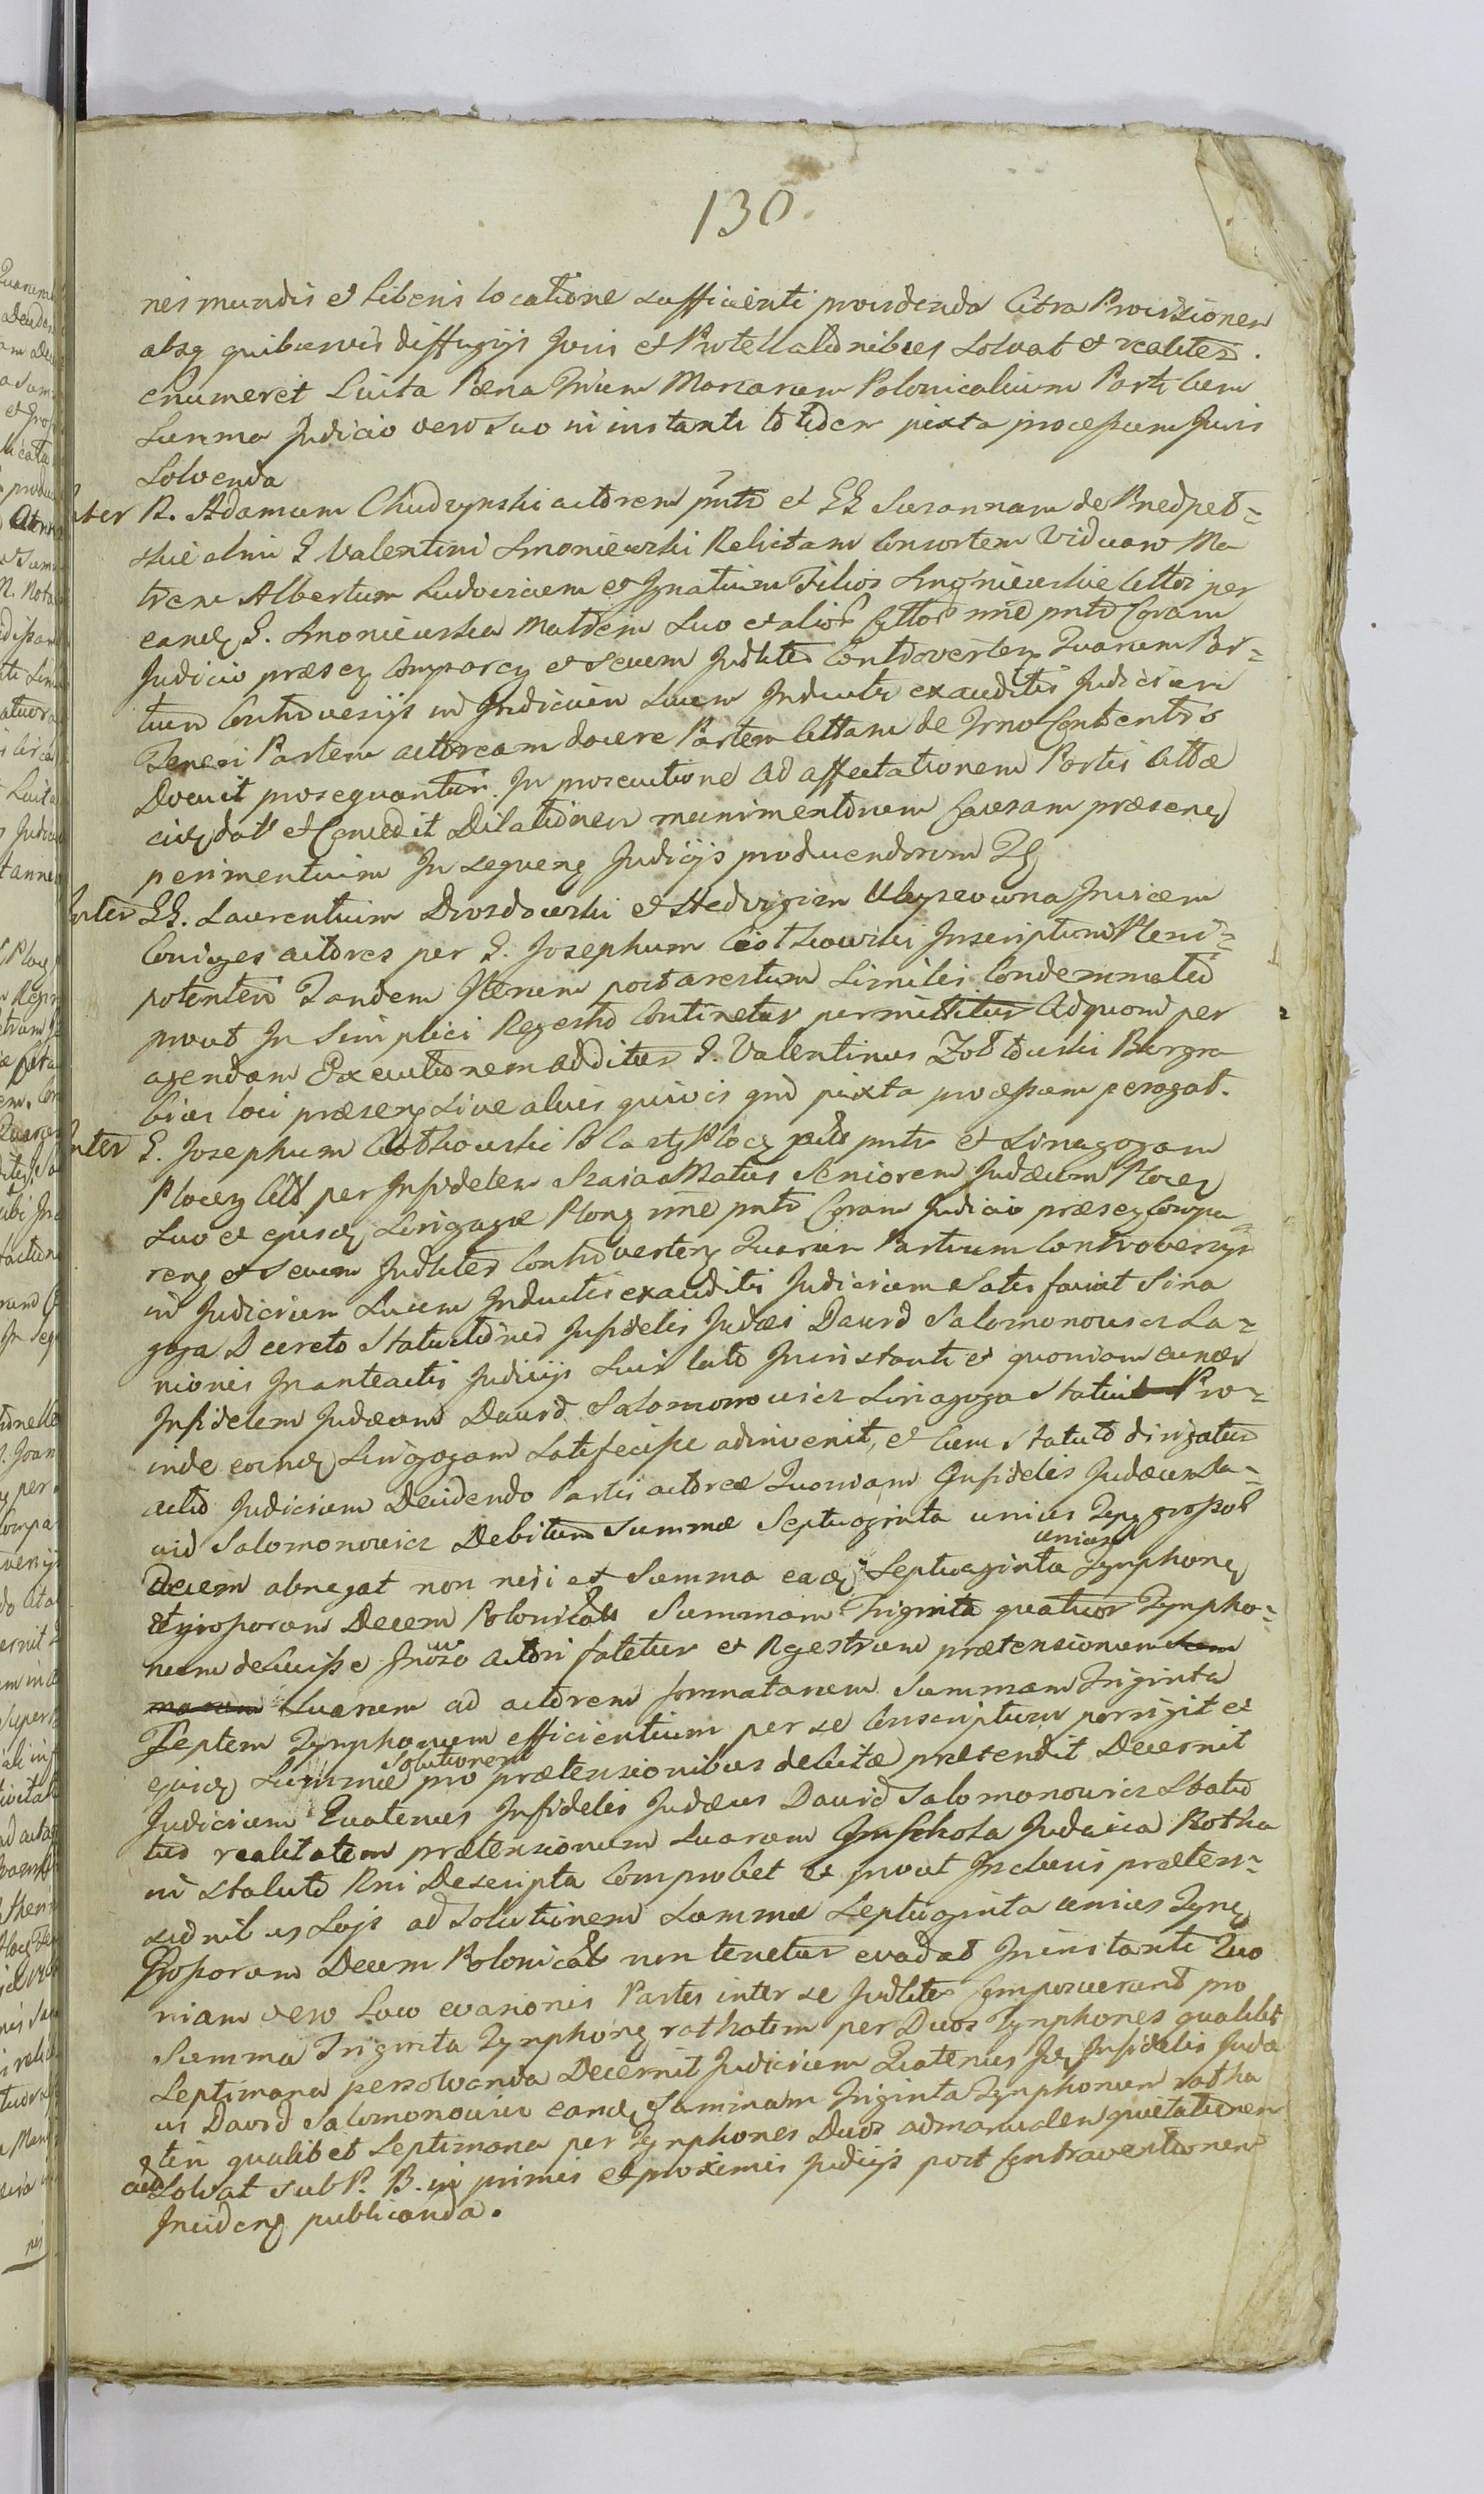 130.
nis mundis et liberis locatione sufficienti providenda Citra Provisionem
absq quibusvis diffugijs Juris et Protestationibus Solvat et realiter
enumeret Luita Pœna Trium Marcarum Polonicalium Parti Cum
Summa Judicio vero Suo in instanti totidem juxta processum Juris
Solvenda
Inter R. Adamum Chudzynski actorem pntr et GG Susannam de
olim G Valentini Smoniewski Relictam Consortem Viduam Ma
trem Albertum Ludovicum et Ignatium Filios Smoniewskie Cittos per
eand G. Smoniewska Matrem Suo et alior Cittor nne pntr Coram
Judicio præsen Comparen et Secum Judlter Controverten Quarum Par=
tium Controversijs in Judicium Suum Inductis exauditis Judicium
Teneri Partem actoream docere Partem Cittam de Trno Contento
Docuit prosequantur. In prosecutione Ad affectationem Partis Cittæ
eidem dat et Concedit Dilationem munimentorum Causam præsen
perimentium In sequen Judicijs producendorum
Inter GG. Laurentium Drozdowski et Hedvigim Invicem
Coniuges actores per G. Josephum Inscriptum Pleni=
potentem Tandem Iterum post arestum Similis Condemnatio
prout In Simplici Regestro Continetur permittitur Ad quam per
agendam Executionem additur G. Valentinus Burgra
bius loci præsen Sive alius quivis qui juxta processum peragat.
Inter G. Josephum pntr et Sinagogam
Plocen Citt per Infidelem Matus Seniorem Judæum Plocen
Suo et ejusd Sinagogæ Plocen nne pntr Coram Judicio præsen Compa=
ren et Secum Judlter Controverten Quarum Partium Controversijs
in Judicium Suum Inductis exauditis Judicium Satisfaciat Sina
goga Decreto Statuitionis Infidelis Judæi David Salomonowicz La=
nionis In anteactis Judicijs Suis lato In instanti et quoniam eundem
Infidelem Judæum David Salomonowicz Sinagoga Statuit Pro=
inde eand Sinagogam Satisfecisse adinvenit, et Cum Statuto dirigatur
actio Judicium Decidendo Partis actoreæ Quoniam Infidelis Judæus Da=
vid Salomonowicz Debitum Summæ Septuaginta unius Tynf grossor
Decem abnegat non nisi ex Summa ead Septuaginta unius Tynphon
et grossorum Decem Polonical Summam Triginta quatuor Tynpho=
num debuisse actori fatetur et Regestrum prætensionum
Suarum ad actorem formatarum Summam Triginta
Septem Tynphonum efficientium per se Conscriptum porrigit et
ejusd Summæ Solutionem pro prætensionibus debitæ prætendit Decernit
Judicium Quatenus Infidelis Judæus David Salomonowicz Statu
tus realitatem prætensionum Suarum In Schola Judaica Rotha
in Statuto Rni Descripta Comprobet et prout In eius præten=
sionibus Sujs ad Solutionem Summæ Septuaginta unius Tynf
Grossorum Decem Polonical non tenetur evadat In instanti Quo
niam vero Loco evasionis Partes inter se Judlter Composuerunt pro
Summa Triginta Tynphon rathatim per Duos Tynphones qualibet
Septimana persolvenda Decernit Judicium Quatenus Idem Infidelis Judæ
us David Salomonowicz eand Summam Triginta Tynphonum ratha
tim qualibet Septimana per Tynphones Duos ad manualem quietationem
Solvat Sub P. B. in primis et proximis Judicijs post Contraventionem
Inciden publicanda.